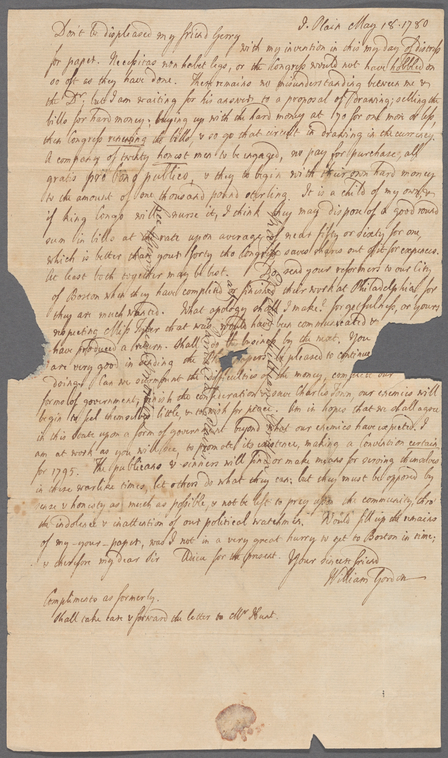 J. Plain May 18. 1780
Don't be displeased my friend Gerry
with my invention in this my day of distress
for paper. Necessitas non habet legs, or the Congress would not have hobbled on
so oft as they have done. There remains no misunderstanding between me &
the Dr; but I am waiting for his answer to a proposal of drawing; selling the
bills for hard money; buying up with the hard money at 170 for one more or less,
then Congress renewing the bills, & so go that circuit in drawing in the currency.
A company of twenty honest men to be engaged, no pay for purchase, all
gratis pro bono publico, & they to begin with their own hard money
to the amount of one thousand pound sterling. It is a child of my own &
if king Congo will nurse it, I think they may dispose of a good round
sum in bills at the rate upon average of near fifty or sixty for one,
which is better than your forty tho Congress saves charges out of it for expences.
At least both together may be best. Do send your reformers to our city
of Boston when they have completed & finished their work at Philadelphia for
they are much wanted. What apology shall I make? for getfulness, or yours
respecting Miss Tyler that who would have been communicated &
have produced a return. Shall do the business by the next. You
are very good in sending the papers, be pleased to continue
doing. Can we surmount the difficulties of the money, complete our
form of government, finish the confederation & once Charles Town, our enemies will
begin to feel themselves little, & to wish for peace. Am in hope that we shall agree
in this State upon a form of government beyond what our enemies have expected. I
am at work as you will see, to promote its existence, making a Convention certain
for 1795. The publicans & sinners will find or make means for serving themselves
in these warlike times, let others do what they can; but they must be opposed by
sense & honesty as much as possible, & not be left to prey upon the community, thro'
the indolence & inattention of our political watchmen. Would fill up the remains
of my - your - paper, was I not in a very great hurry to get to Boston in time;
& therefore my dear Sir Adieu for the present. Your sincere friend
William Gordon
Compliments as formerly.
Shall take care & forward the letter to Mr Hunt.